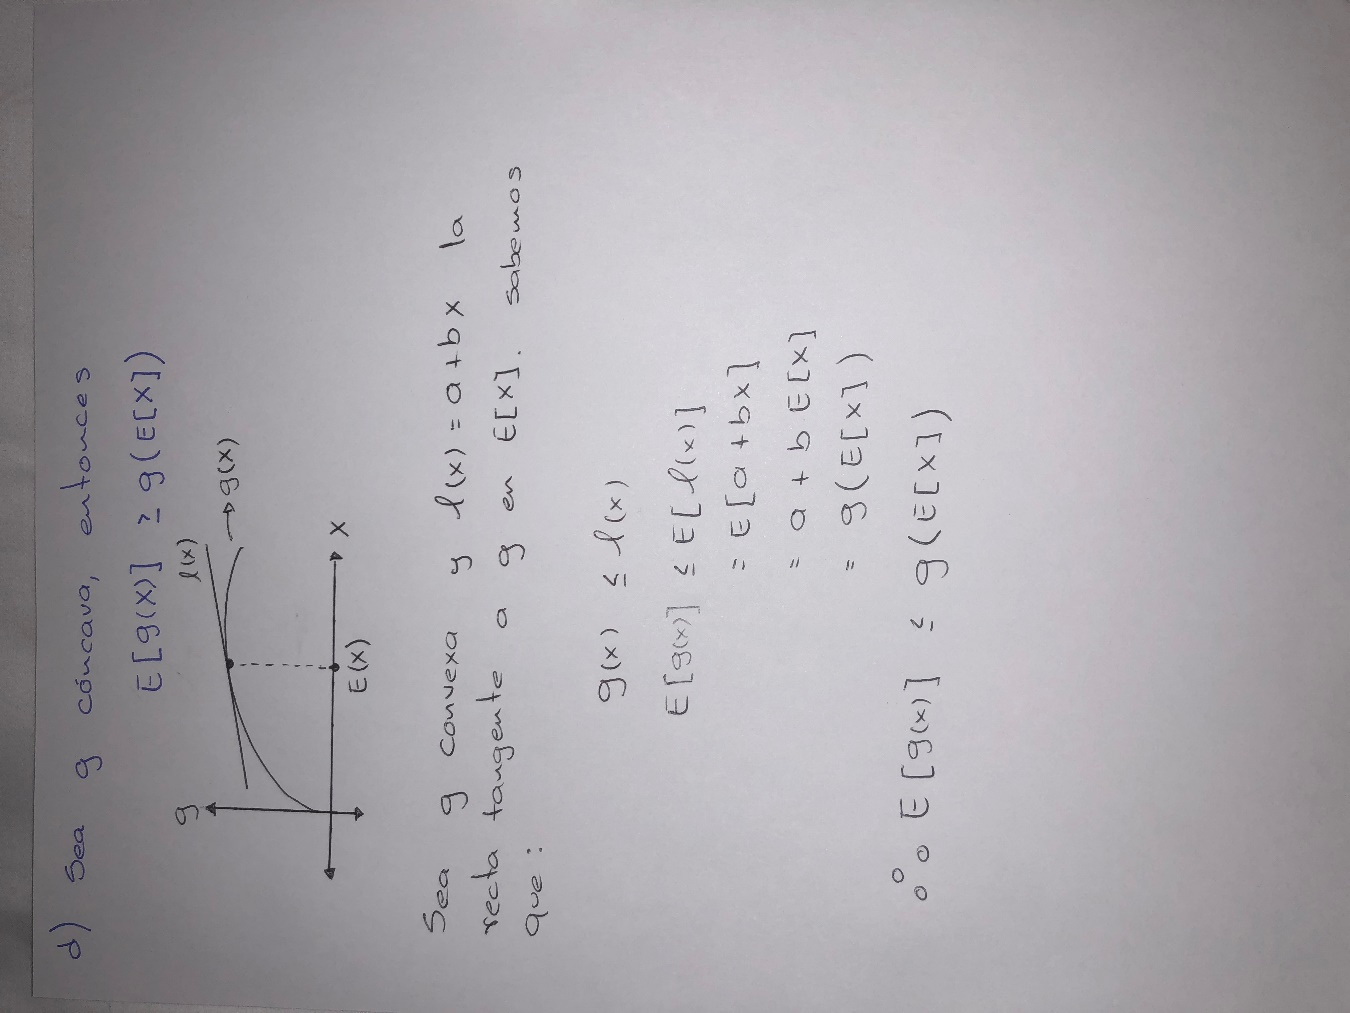 d) Sea g cóncava, entonces
E[g(x)] ≥ g(E[x])
g
l(x)
→ g(x)
E(x)
x
Sea g convexa y l(x) = a+bx la
recta tangente a g en E[x]. sabemos
que:
g(x) ≤ l(x)
E[g(x)] ≤ E[l(x)]
= E[a+bx]
= a + b E[x]
= g(E[x])
∴ E[g(x)] ≤ g(E[x])